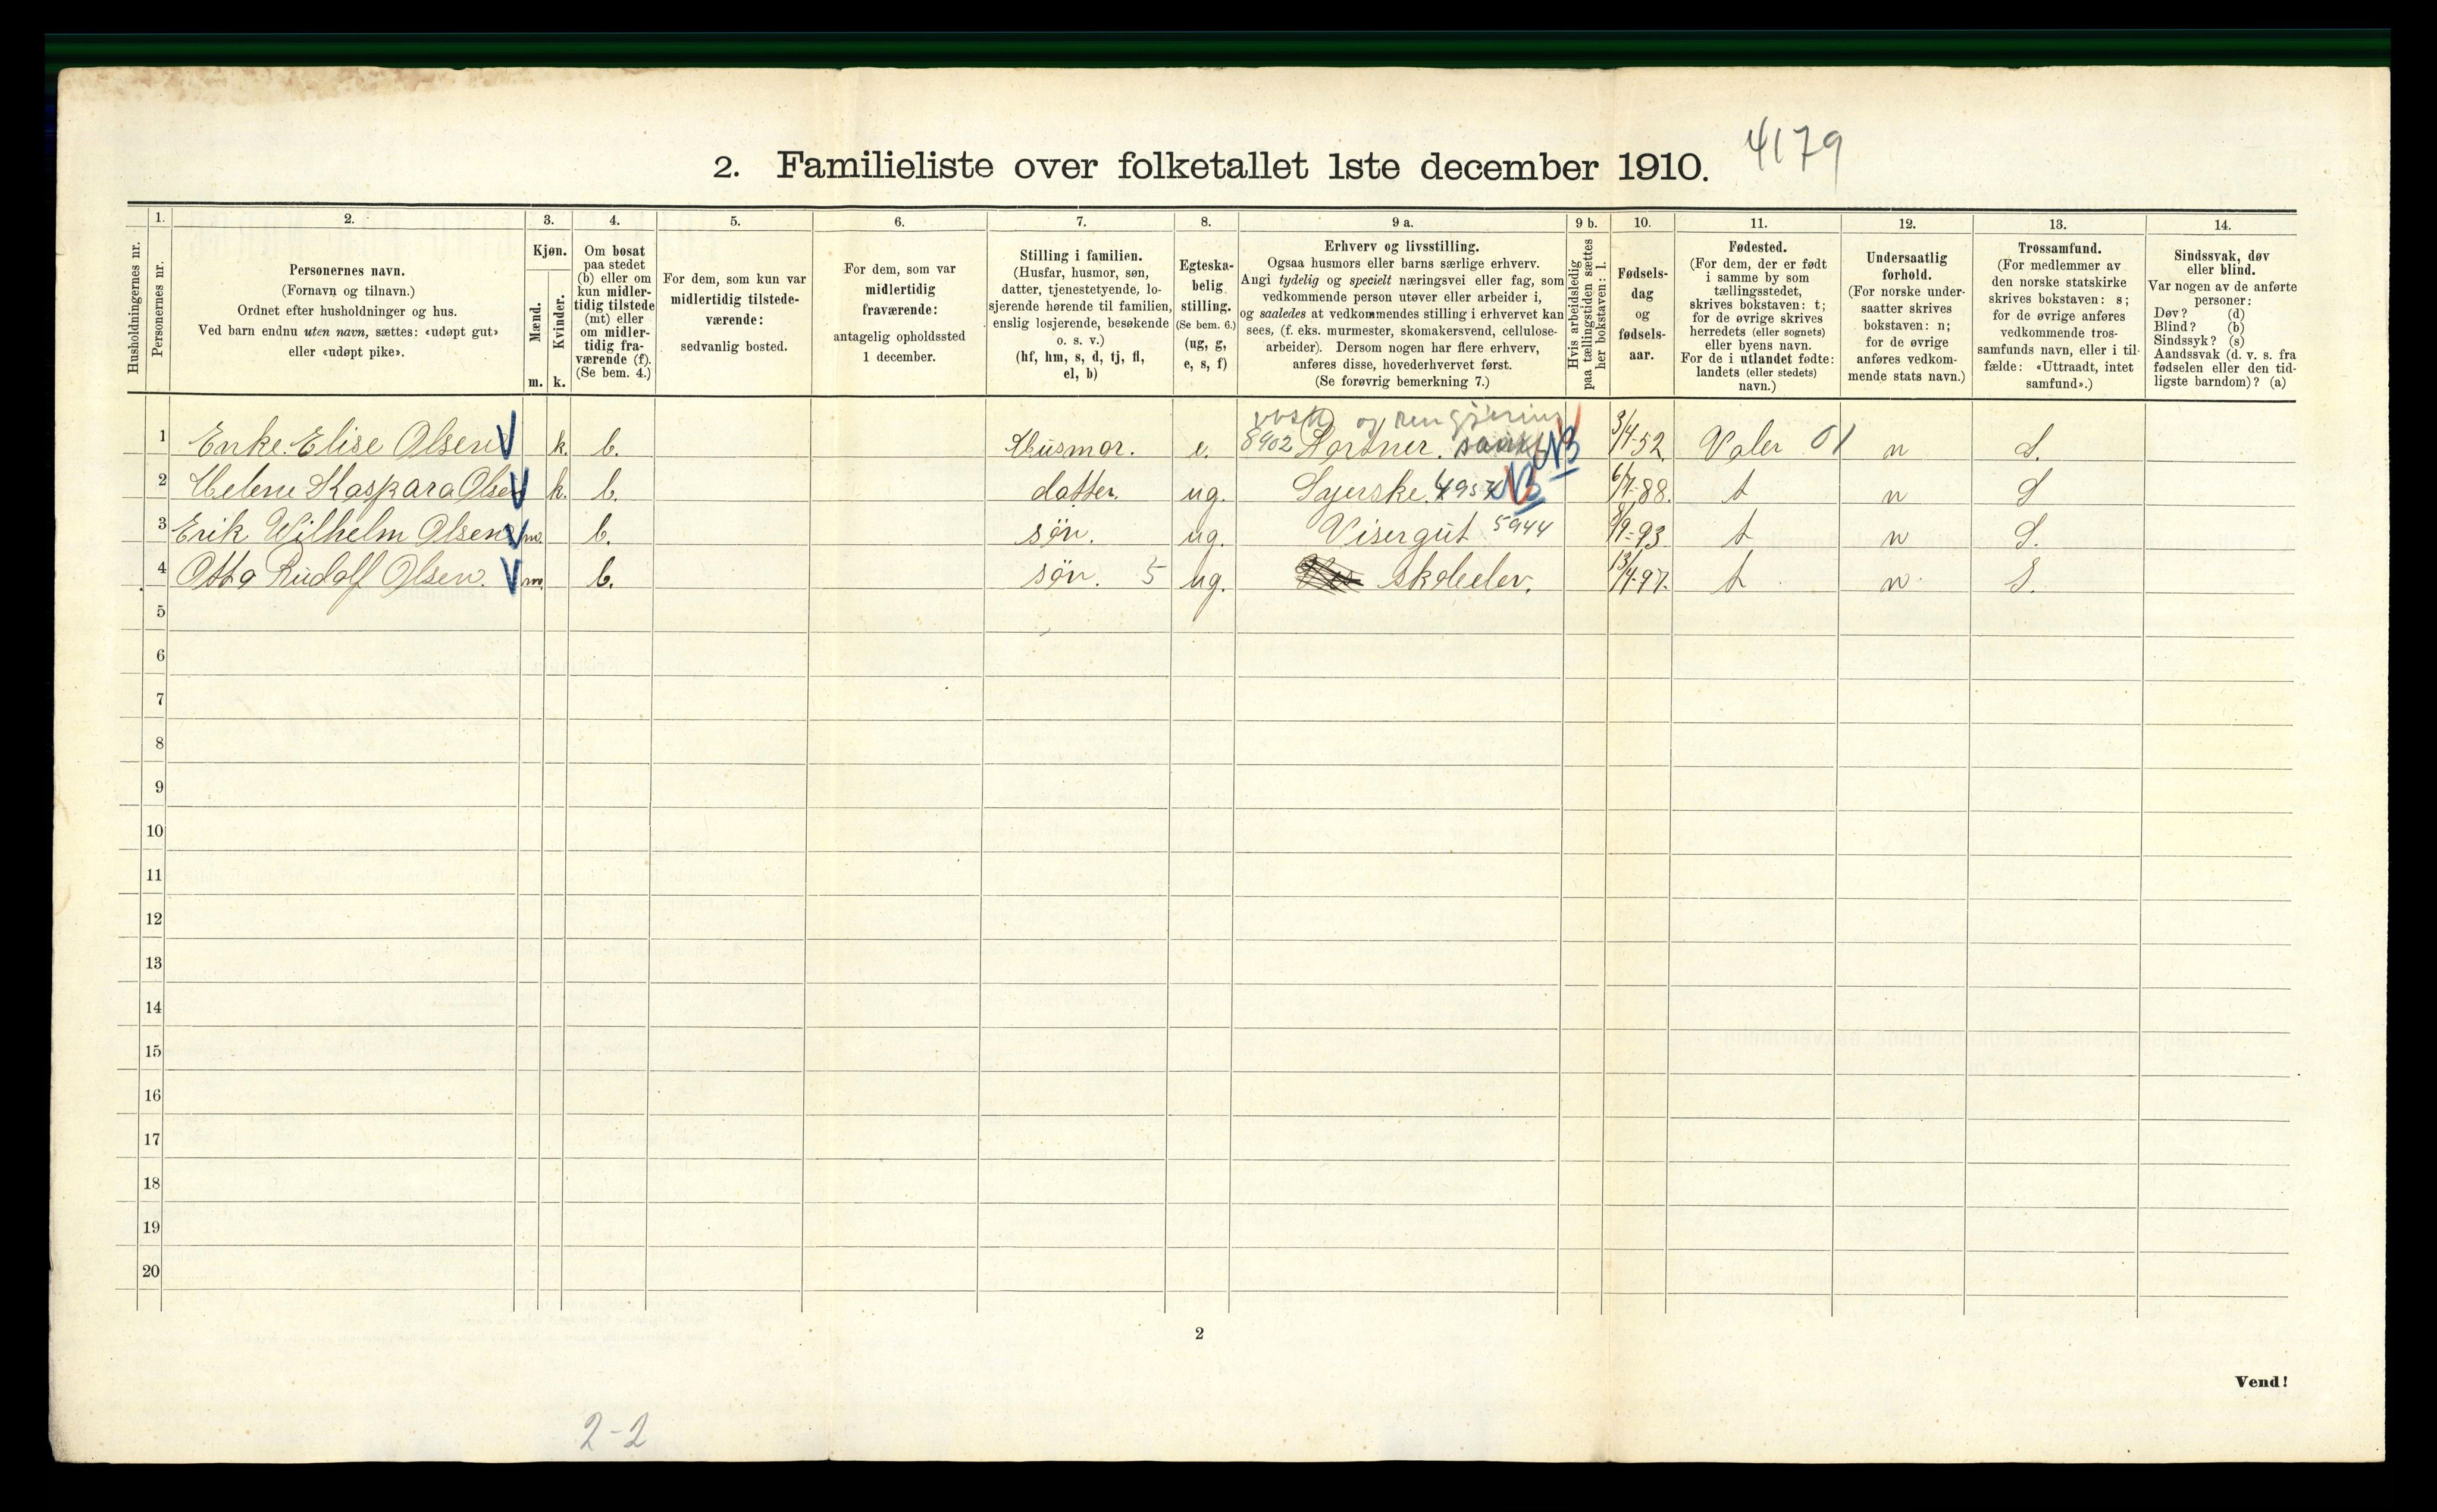 2. Familieliste over folketallet 1ste december 1910. 4179
Husholdningernes nr.
1.
Personernes nr.
2.
Personernes navn.
(Fornavn og tilnavn.)
Ordnet efter husholdninger og hus.
Ved barn endnu uten navn, sættes: «udøpt gut»
eller «udøpt pike».
3.
Kjøn.
Mænd.
Kvinder.
m. k.
4.
Om bosat
paa stedet
(b) eller om
kun midler-
tidig tilstede
(mt) eller
om midler-
tidig fra-
værende (f).
(Se bem. 4.)
5.
For dem, som kun var
midlertidig tilstede-
værende:
sedvanlig bosted.
6.
For dem, som var
midlertidig
fraværende:
antagelig opholdssted
1 december.
7.
Stilling i familien.
(Husfar, husmor, søn,
datter, tjenestetyende, lo-
sjerende hørende til familien,
enslig losjerende, besøkende
o. s. v.)
(hf, hm, s, d, tj, fl,
el, b)
8.
Egteska-
belig
stilling.
(Se bem. 6.)
(ug, g,
e, s, f)
9 a.
Erhverv og livsstilling.
Ogsaa husmors eller barns særlige erhverv.
Angi tydelig og specielt næringsvei eller fag, som
vedkommende person utøver eller arbeider i,
og saaledes at vedkommendes stilling i erhvervet kan
sees, (f. eks. murmester, skomakersvend, cellulose-
arbeider). Dersom nogen har flere erhverv,
anføres disse, hovederhvervet først.
(Se forøvrig bemerkning 7.)
9 b.
Hvis arbeidsledig
paa tællingstiden sættes
her bokstaven: l.
10.
Fødsels-
dag
og
fødsels-
aar.
11.
Fødested.
(For dem, der er født
i samme by som
tællingsstedet,
skrives bokstaven: t;
for de øvrige skrives
herredets (eller sognets)
eller byens navn.
For de i utlandet fødte:
landets (eller stedets)
navn.)
12.
Undersaatlig
forhold.
(For norske under-
saatter skrives
bokstaven: n;
for de øvrige
anføres vedkom-
mende stats navn.)
13.
Trossamfund.
(For medlemmer av
den norske statskirke
skrives bokstaven: s;
for de øvrige anføres
vedkommende tros-
samfunds navn, eller i til-
fælde: «Uttraadt, intet
samfund».)
14.
Sindssvak, døv
eller blind.
Var nogen av de anførte
personer:
Døv? (d)
Blind? (b)
Sindssyk? (s)
Aandssvak (d. v. s. fra
fødselen eller den tid-
ligste barndom)? (a)
vask og rengjøring
1 Enke. Elise Olsen V k. b. Husmor. e. 8902 NB 3/4-52. Valer 01 n S.
2 Helene Kaspara Olsen V k. b. datter. ug. Syerske. NB 6/7-88. t n S
3 Erik Wilhelm Olsen V m. b. søn. ug. Visergut 5944 8/9-93 t n S.
4 Otto Rudolf Olsen. V m. b. søn. 5 ug. skoleelev. 13/4-97. t n. S.
5
6
7
8
9
10
11
12
13
14
15
16
17
18
19
20
2
Vend!
2-2